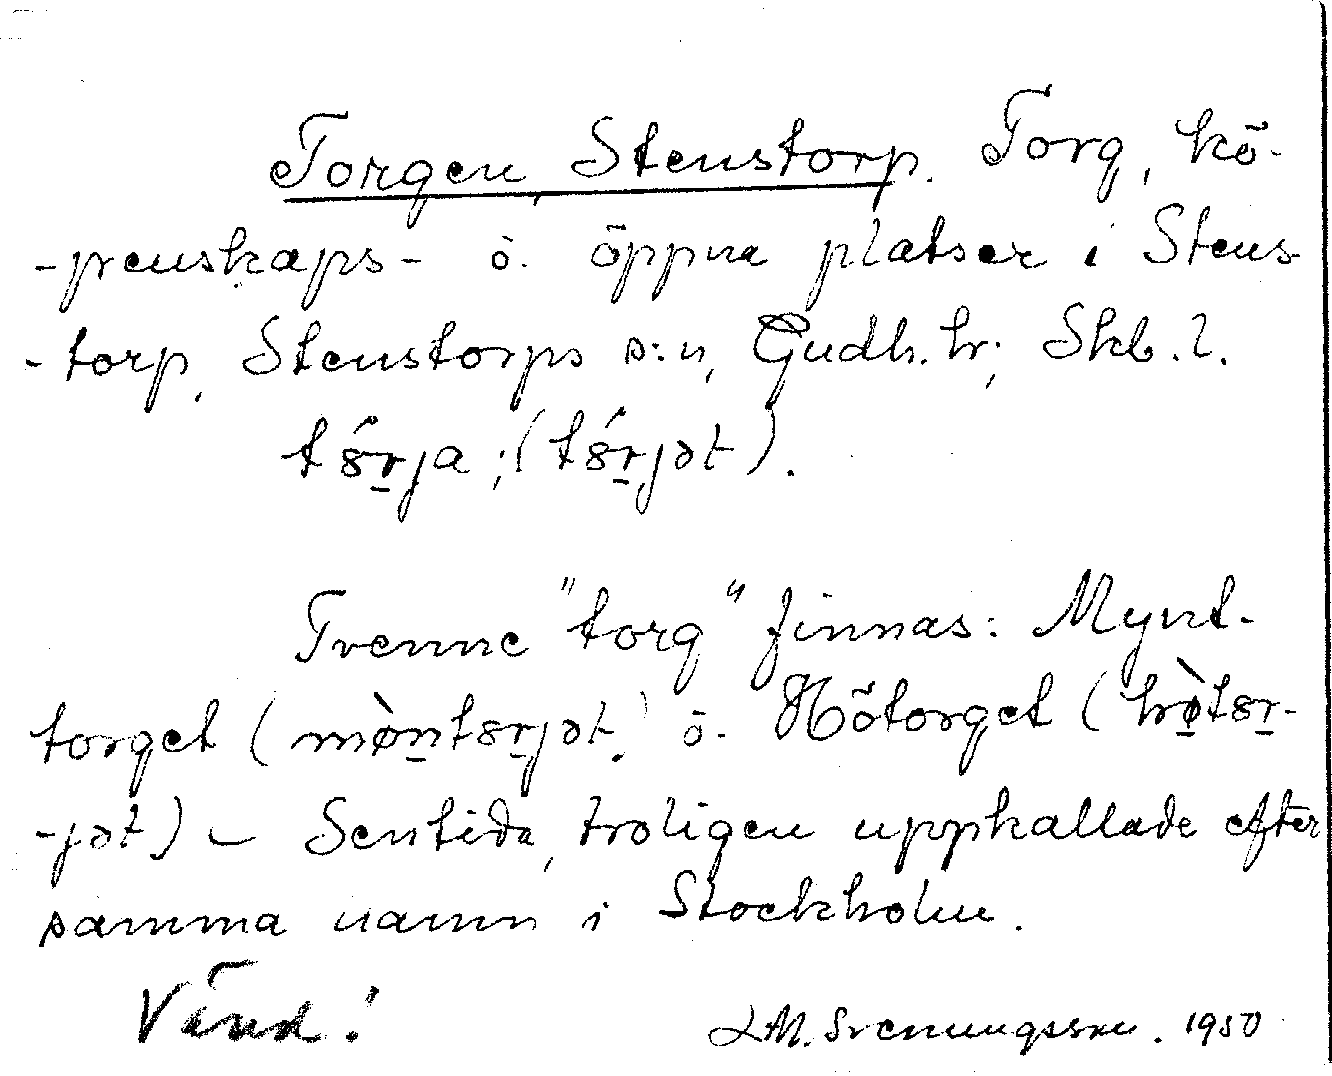 Torgen, Stenstorp. Torg, kö-
-penskaps- o. öppna platser i Stens-
-torp, Stenstorps s:n, Gudh. hr; Skb. l.
tǿrja; (tǿrjǝt).
Tvenne "torg" finnas: Mynt-
torget (mø̀ntørjǝt) o. Hötorget (hø̀tør-
-jǝt) – Sentida, troligen uppkallade efter
samma namn i Stockholm.
Vänd!
L M. Svenungsson. 1950